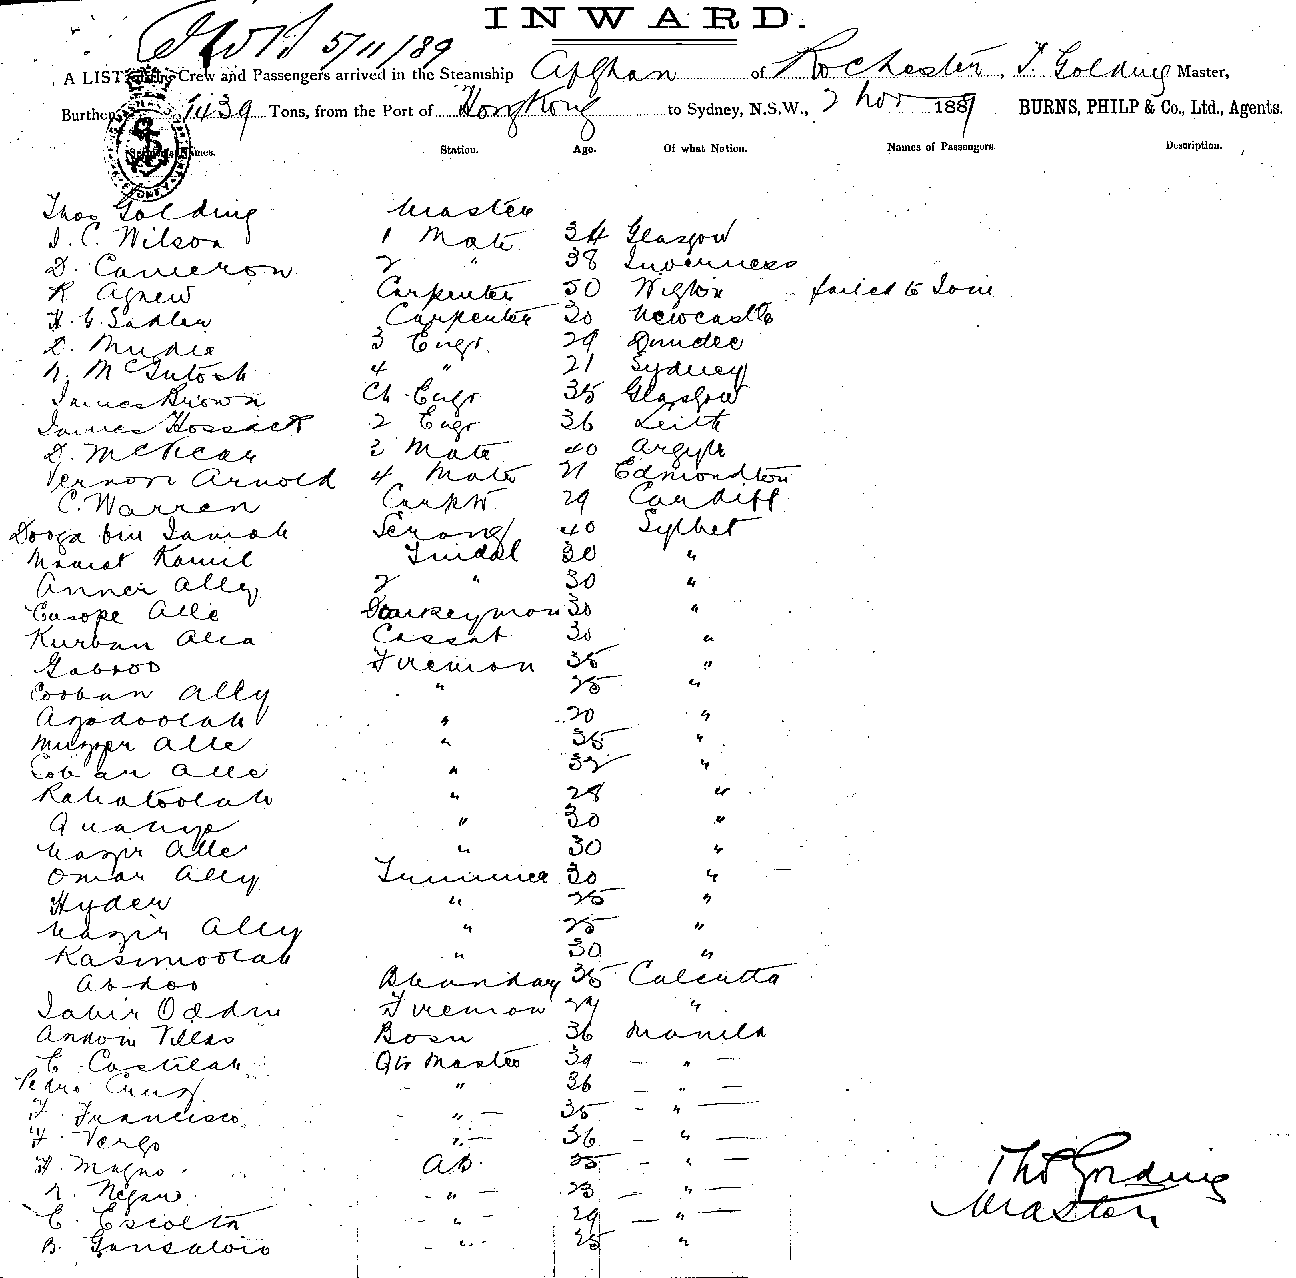 INWARD.
5/11/89
A LIST Crew and Passengers arrived in the Steamship Afghan of Rochester, T. Golding Master,
Burthen 1439 Tons, from the Port of Hong Kong to Sydney, N.S.W., 2 Nov 1889 BURNS, PHILP & Co., Ltd., Agents.
Names. Station. Age. Of what Nation. Names of Passengers. Description.
Thos Golding Master
J. C. Wilson 1 Mate 34 Glasgow
D. Cameron 2 " 38 Inverness
R Agnew Carpenter 50 Wigton failed to Join
H. G. Sadler Carpenter 30 Newcastle
D. Mudie 3 Engr. 29 Dundee
N. McIntosh 4 " 21 Sydney
James Brown Ch. Engr 35 Glasgow
James Hossack 2 Engr 36 Leith
D. McKear 3 Mate 40 Argyle
Vernon Arnold 4 Mate 21 Edmondton
C. Warren 29 Cardiff
Dooga bin Serang 40 Sylhet
Kamil Tindal 30 "
Anner Ally 2 " 30 "
Eusope Alle Donkeyman 30 "
Kurban Alla Cassab 30 "
Gabroo Fireman 35 "
Cooban Ally " 25 "
Azodoolah " 20 "
Muzzer Alle " 35 "
Coban Alle " 32 "
Rahatoolah " 28 "
" 30 "
Nazir Alle " 30 "
Omar Ally Trimmer 30 "
Hyder " 25 "
Nazir Ally " 25 "
Kasimoolah " 30 "
Abdoo Bhandary 35 Calcutta
Sabir Oddin Fireman 29 "
Bosn 36 Manila
C. Castilah Qtr Master 39 "
Pedro Cruz " 36 "
F. Francisco " 35 "
F. Vergo " 36 "
H. Magno AB. 25 "
N. " 23 "
C. Escolta " 29 "
B. Gonsalvis " 25 "
Thos Golding
Master